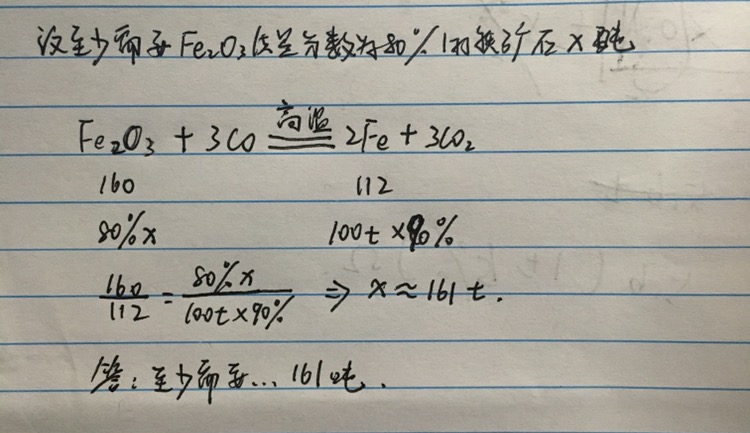 设至少需要Fe₂O₃质量分数为80%的铁矿石x吨
Fe₂O₃ + 3CO 高温 2Fe + 3CO₂
160 112
80%x 100t×90%
160/112 = 80%x/100t×90% ⇒ x≈161t.
答:至少需要...161吨.